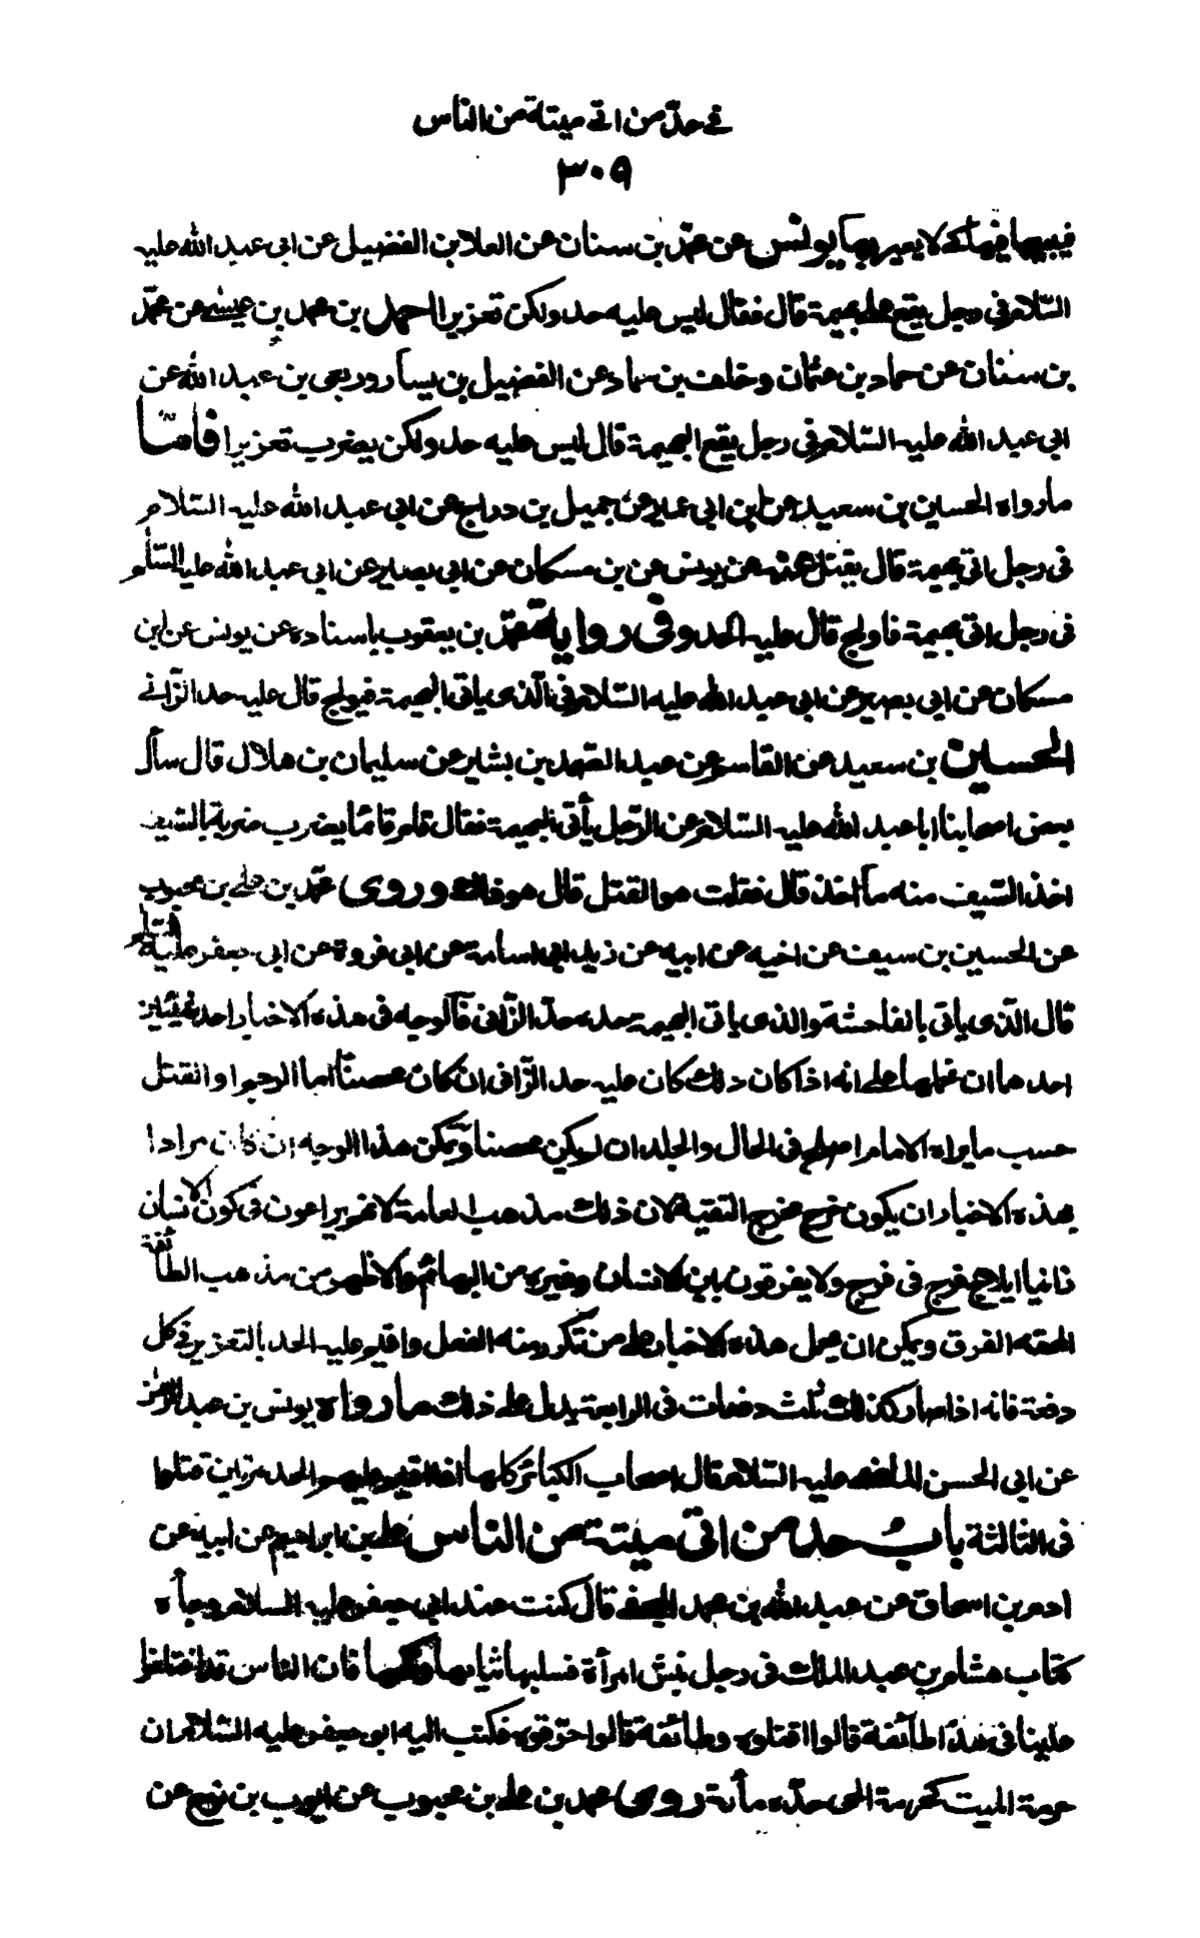 في حدّ من اتى ميتة من الناس
٣٠٩
فيبيعها فيها كيلا يعير بها يونس عن محمّد بن سنان عن العلا بن الفضيل عن ابى عبد الله عليه
السّلام فى رجل يقع على بهيمة قال فقال ليس عليه حد ولكن تعزيرا احمد بن محمد بن عيسى عن محمّد
بن سنان عن حماد بن عثمان وخلف بن حماد عن الفضيل بن يسار وربعى بن عبد الله عن
ابى عبد الله عليه السّلام فى رجل يقع البهيمة قال ليس عليه حد ولكن يضرب تعزيرا فامّا
ما رواه الحسين بن سعيد عن ابن ابى عمير عن جميل بن دراج عن ابى عبد الله عليه السّلام
فى رجل اتى بهيمة قال يقتل عنه عن يونس عن بن مسكان عن ابى بصير عن ابى عبد الله عليه السّلم
فى رجل اتى بهيمة فاولج قال عليه الحد وفى رواية محمّد بن يعقوب باسناده عن يونس عن ابن
مسكان عن ابى بصير عن ابى عبد الله عليه السّلام فى الّذى ياتى البهيمة فيولج قال عليه حد الزّانى
الحسين بن سعيد عن القاسم عن عبد الصّمد بن بشير عن سليمان بن هلال قال سأل
بعض اصحابنا ابا عبد الله عليه السّلام عن الرّجل يأتى البهيمة فقال قام قائما يضرب ضربة بالسّيف
اخذ السّيف منه ما اخذ قال فقلت هو القتل قال هو ذاك وروى محمّد بن على بن محبوب
عن الحسين بن سيف عن اخيه عن ابيه عن زيد ابى اسامة عن ابى فروة عن ابى جعفر عليه السّلم
قال الّذى ياتى بالفاحشة والذى ياتى البهيمة حده حدّ الزّانى فالوجه فى هذه الاخبار احد شيئين
احدهما ان نحملها على انه اذا كان دون كان عليه حد الزّانى ان كان محصنا اما الرجم او القتل
حسب ما يراه الامام اصلح فى الحال والجلد ان لم يكن محصنا ويمكن هذا الوجه ان كان مرادا
بهذه الاخبار ان يكون خرج مخرج التقية لان ذلك مذهب العامة لانهم يراعون فى كون الانسان
زانيا ايلاج فرج فى فرج ولا يفرقون بين الانسان وغيره من البهائم والاظهر من مذهب الطائفة
المحقه الفرق ويمكن ان يحمل هذه الاخبار على من تكرر منه الفعل واقيم عليه الحد بالتعزير فى كل
دفعة فانه اذا صار كذلك ثلث دفعات فى الرابعة يدل على ذلك ما رواه يونس بن عبد الرحمن
عن ابى الحسن الماضى عليه السّلام قال اصحاب الكبائر كلها اذا اقيم عليهم الحد مرّتين قتلوا
فى الثالثة باب حد من اتى ميتة من الناس على بن ابراهيم عن ابيه عن
ادم بن اسحاق عن عبد الله بن محمد الجعفى قال كنت عند ابى جعفر عليه السلام وجاءه
كتاب هشام بن عبد الملك فى رجل نبش امرأة فسلبها ثيابها ونكحها فان الناس قد اختلفوا
علينا فى هذا طائفة قالوا اقتلوه وطائفة قالوا احرّقوه فكتب اليه ابو جعفر عليه السّلام ان
حرمة الميت كحرمة الحى حدّه مأة روى محمد بن على بن محبوب عن ايوب بن نوح عن